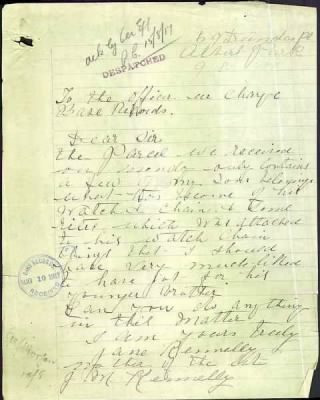 ack by
13/8/17
DESPATCHED
Albert Park
To the officer in Charge
Base Records.
Dear Sir
the Parcel we received
on only contains
a few of my Sons belongings
what has become of his
Watch & Chain & some
which was attached
to his watch Chain
things that I should
have very much liked
to have got for his
younger brother
Can you do anything
in this Matter
I am yours truly
Jane Kennelly
mother of the late
J M Kennelly
BASE RECORDS
AUG 10 1917
RECEIVED